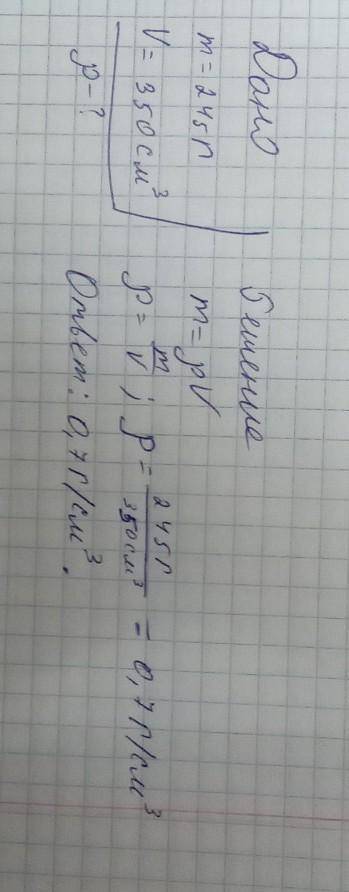 Дано
m = 245г
V = 350см³
ρ - ?
Решение
m = ρV
ρ = m/V ; ρ = 245г/350см³ = 0,7г/см³
Ответ: 0,7г/см³.